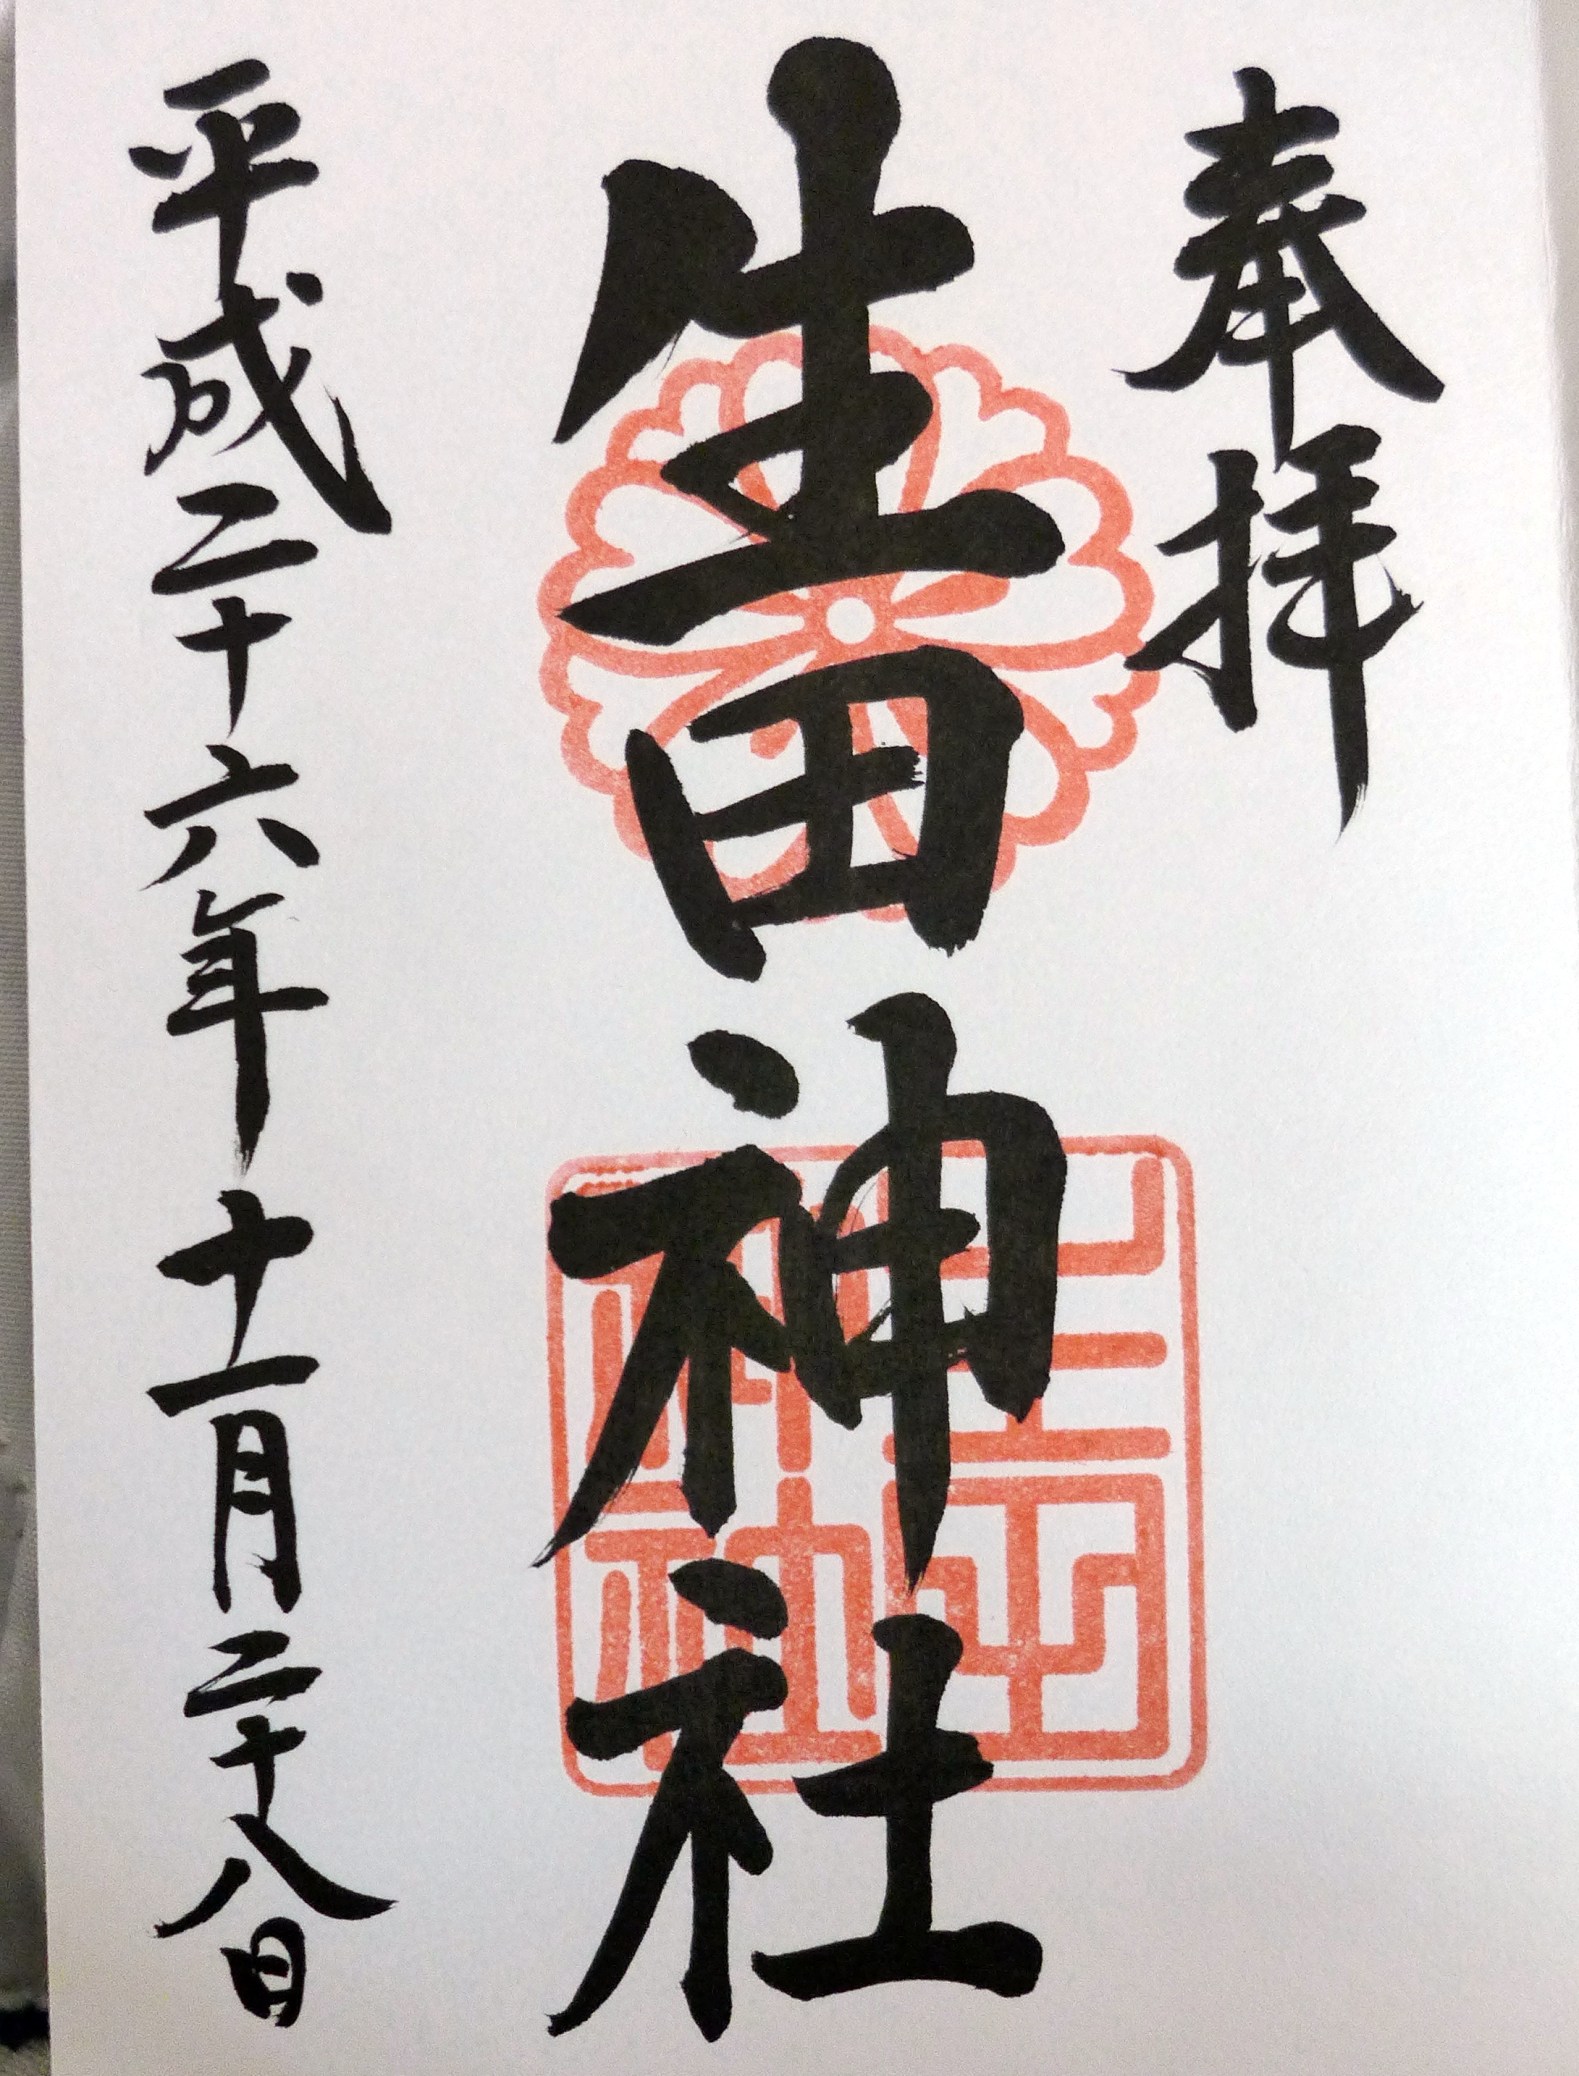 奉拝
生田神社
平成二十六年十一月二十八日
生田神社